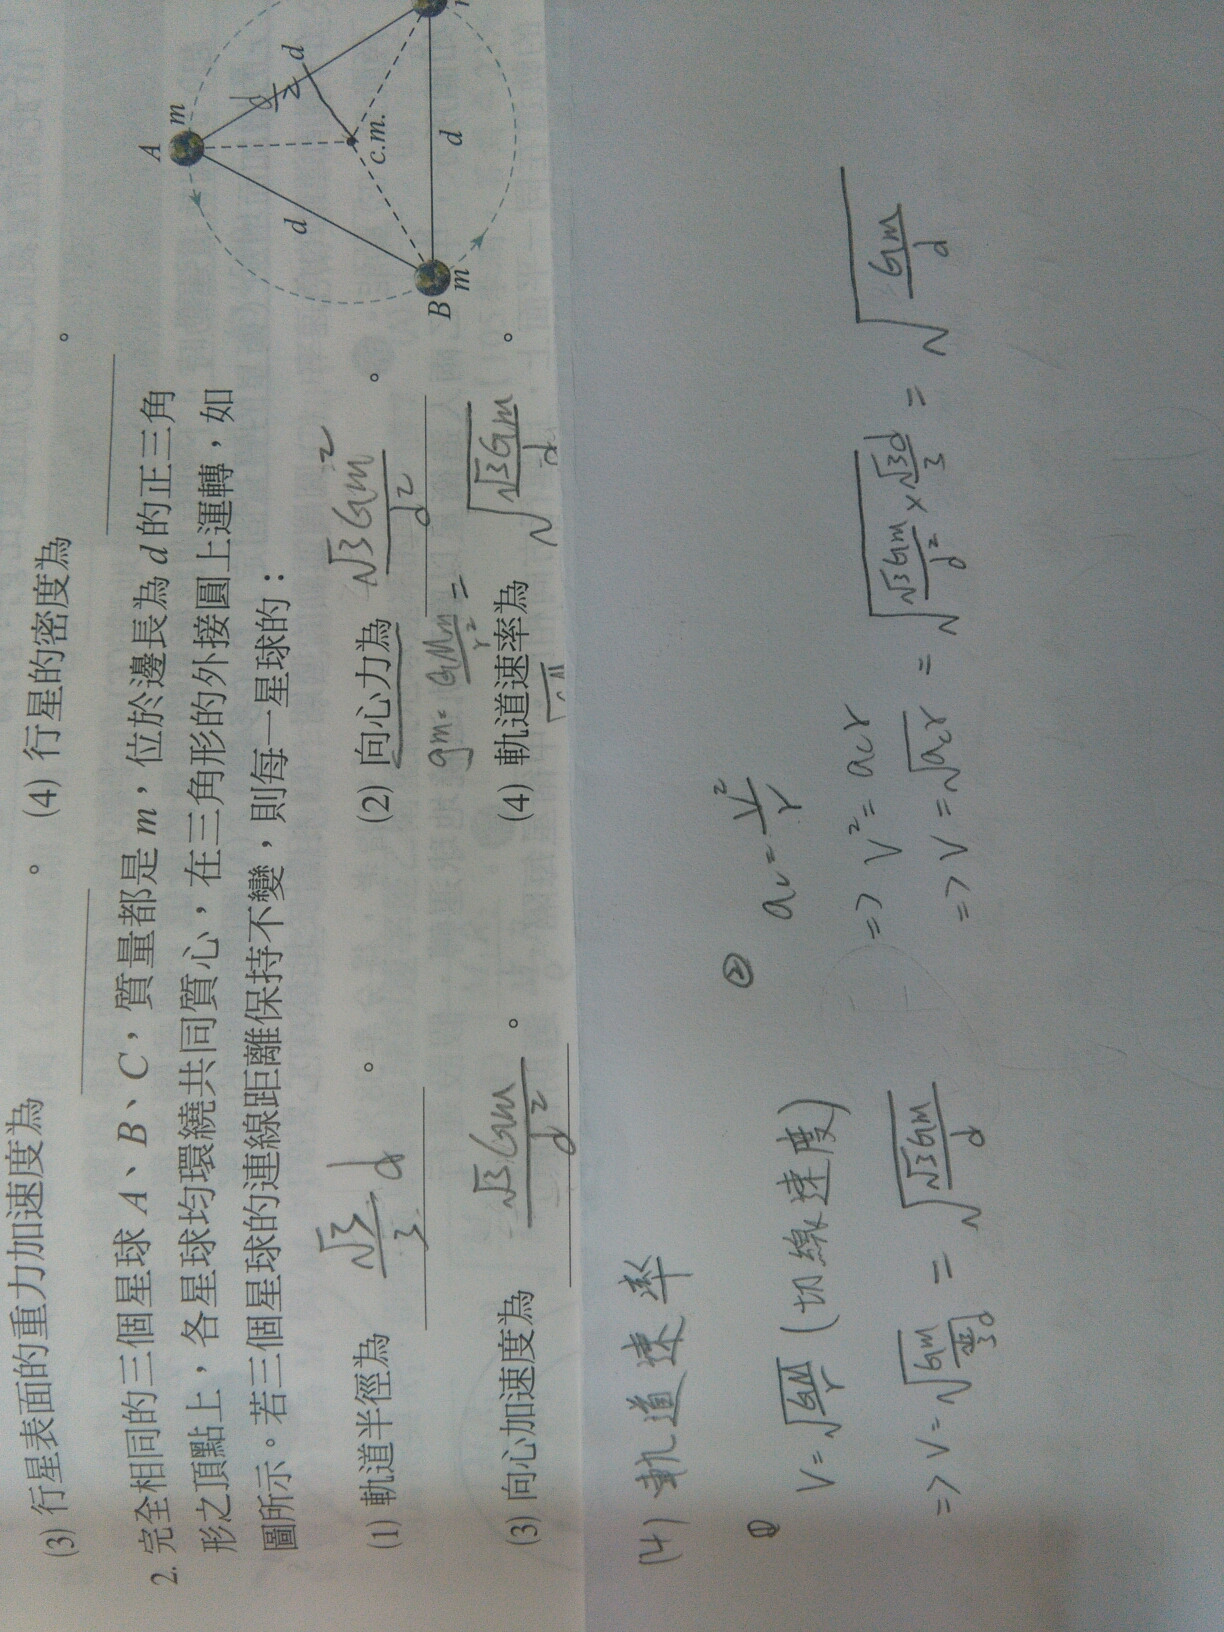 (3) 行星表面的重力加速度為 。 (4) 行星的密度為 。
2. 完全相同的三個星球 A、B、C，質量都是 m，位於邊長為 d 的正三角
形之頂點上，各星球均環繞共同質心，在三角形的外接圓上運轉，如
圖所示。若三個星球的連線距離保持不變，則每一星球的：
(1) 軌道半徑為 √3/3 d 。 (2) 向心力為 √3Gm²/d² 。
gm = GMm/r² =
(3) 向心加速度為 √3Gm/d² 。 (4) 軌道速率為 √(√3Gm/d) 。
A
m
d
d/2
d
c.m.
B
m
d
(4) 軌道速率
① V = √(GM/r) (切線速度)
=> V = √(Gm/(√3/3 d)) = √(√3Gm/d)
② ac = V²/r
=> V² = acr
=> V = √(acr) = √(√3Gm/d² × √3d/3) = √(Gm/d)